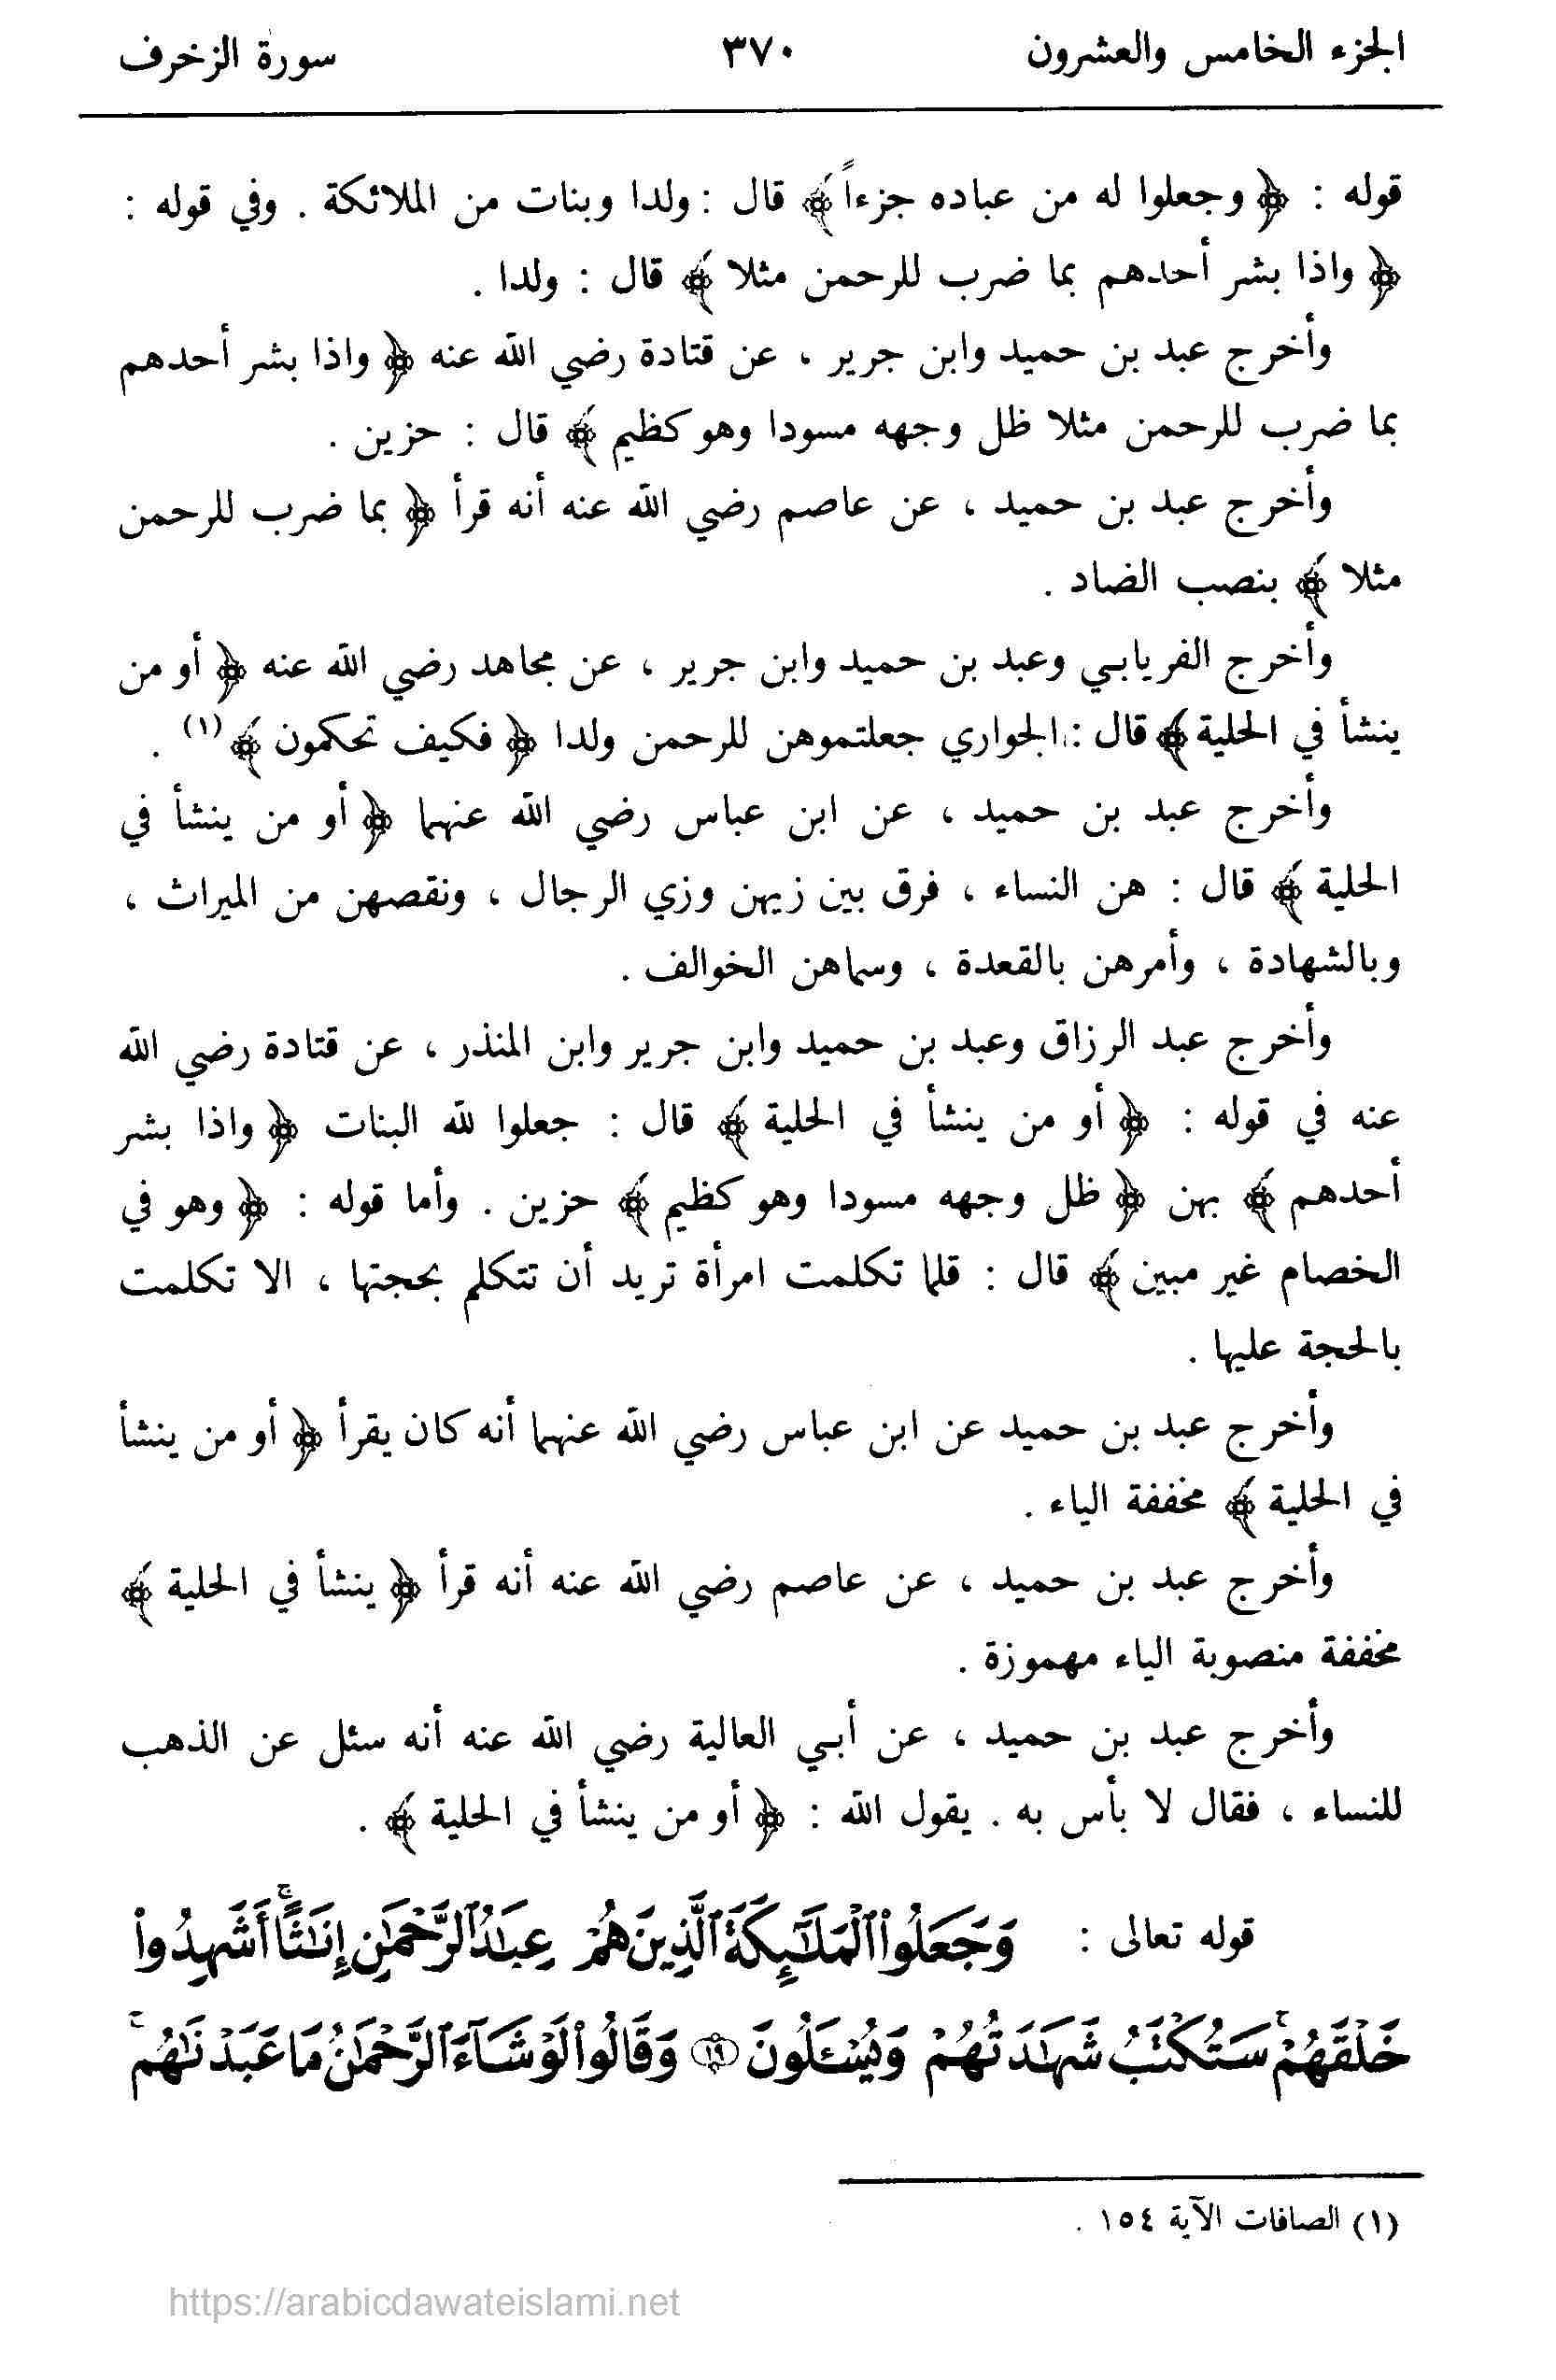 الجزء الخامس والعشرون ٣٧٠ سورة الزخرف
قوله : ﴿ وجعلوا له من عباده جزءاً ﴾ قال : ولدا وبنات من الملائكة . وفي قوله :
﴿ واذا بشر أحدهم بما ضرب للرحمن مثلا ﴾ قال : ولدا .
وأخرج عبد بن حميد وابن جرير ، عن قتادة رضي الله عنه ﴿ واذا بشر أحدهم
بما ضرب للرحمن مثلا ظل وجهه مسودا وهو كظيم ﴾ قال : حزين .
وأخرج عبد بن حميد ، عن عاصم رضي الله عنه أنه قرأ ﴿ بما ضرب للرحمن
مثلا ﴾ بنصب الضاد .
وأخرج الفريابي وعبد بن حميد وابن جرير ، عن مجاهد رضي الله عنه ﴿ أو من
ينشأ في الحلية ﴾ قال : الجواري جعلتموهن للرحمن ولدا ﴿ فكيف تحكمون ﴾ (١) .
وأخرج عبد بن حميد ، عن ابن عباس رضي الله عنهما ﴿ أو من ينشأ في
الحلية ﴾ قال : هن النساء ، فرق بين زيهن وزي الرجال ، ونقصهن من الميراث ،
وبالشهادة ، وأمرهن بالقعدة ، وسماهن الخوالف .
وأخرج عبد الرزاق وعبد بن حميد وابن جرير وابن المنذر ، عن قتادة رضي الله
عنه في قوله : ﴿ أو من ينشأ في الحلية ﴾ قال : جعلوا لله البنات ﴿ واذا بشر
أحدهم ﴾ بهن ﴿ ظل وجهه مسودا وهو كظيم ﴾ حزين . وأما قوله : ﴿ وهو في
الخصام غير مبين ﴾ قال : قلما تكلمت امرأة تريد أن تتكلم بحجتها ، الا تكلمت
بالحجة عليها .
وأخرج عبد بن حميد عن ابن عباس رضي الله عنهما أنه كان يقرأ ﴿ أو من ينشأ
في الحلية ﴾ مخففة الياء .
وأخرج عبد بن حميد ، عن عاصم رضي الله عنه أنه قرأ ﴿ ينشأ في الحلية ﴾
مخففة منصوبة الياء مهموزة .
وأخرج عبد بن حميد ، عن أبي العالية رضي الله عنه أنه سئل عن الذهب
للنساء ، فقال لا بأس به . يقول الله : ﴿ أو من ينشأ في الحلية ﴾ .
قوله تعالى : وَجَعَلُوا۟ ٱلْمَلَـٰٓئِكَةَ ٱلَّذِينَ هُمْ عِبَـٰدُ ٱلرَّحْمَـٰنِ إِنَـٰثًا ۚ أَشَهِدُوا۟
خَلْقَهُمْ ۚ سَتُكْتَبُ شَهَـٰدَتُهُمْ وَيُسْـَٔلُونَ ﴿١٩﴾ وَقَالُوا۟ لَوْ شَآءَ ٱلرَّحْمَـٰنُ مَا عَبَدْنَـٰهُم ۚ
(١) الصافات الآية ١٥٤ .
https://arabicdawateislami.net